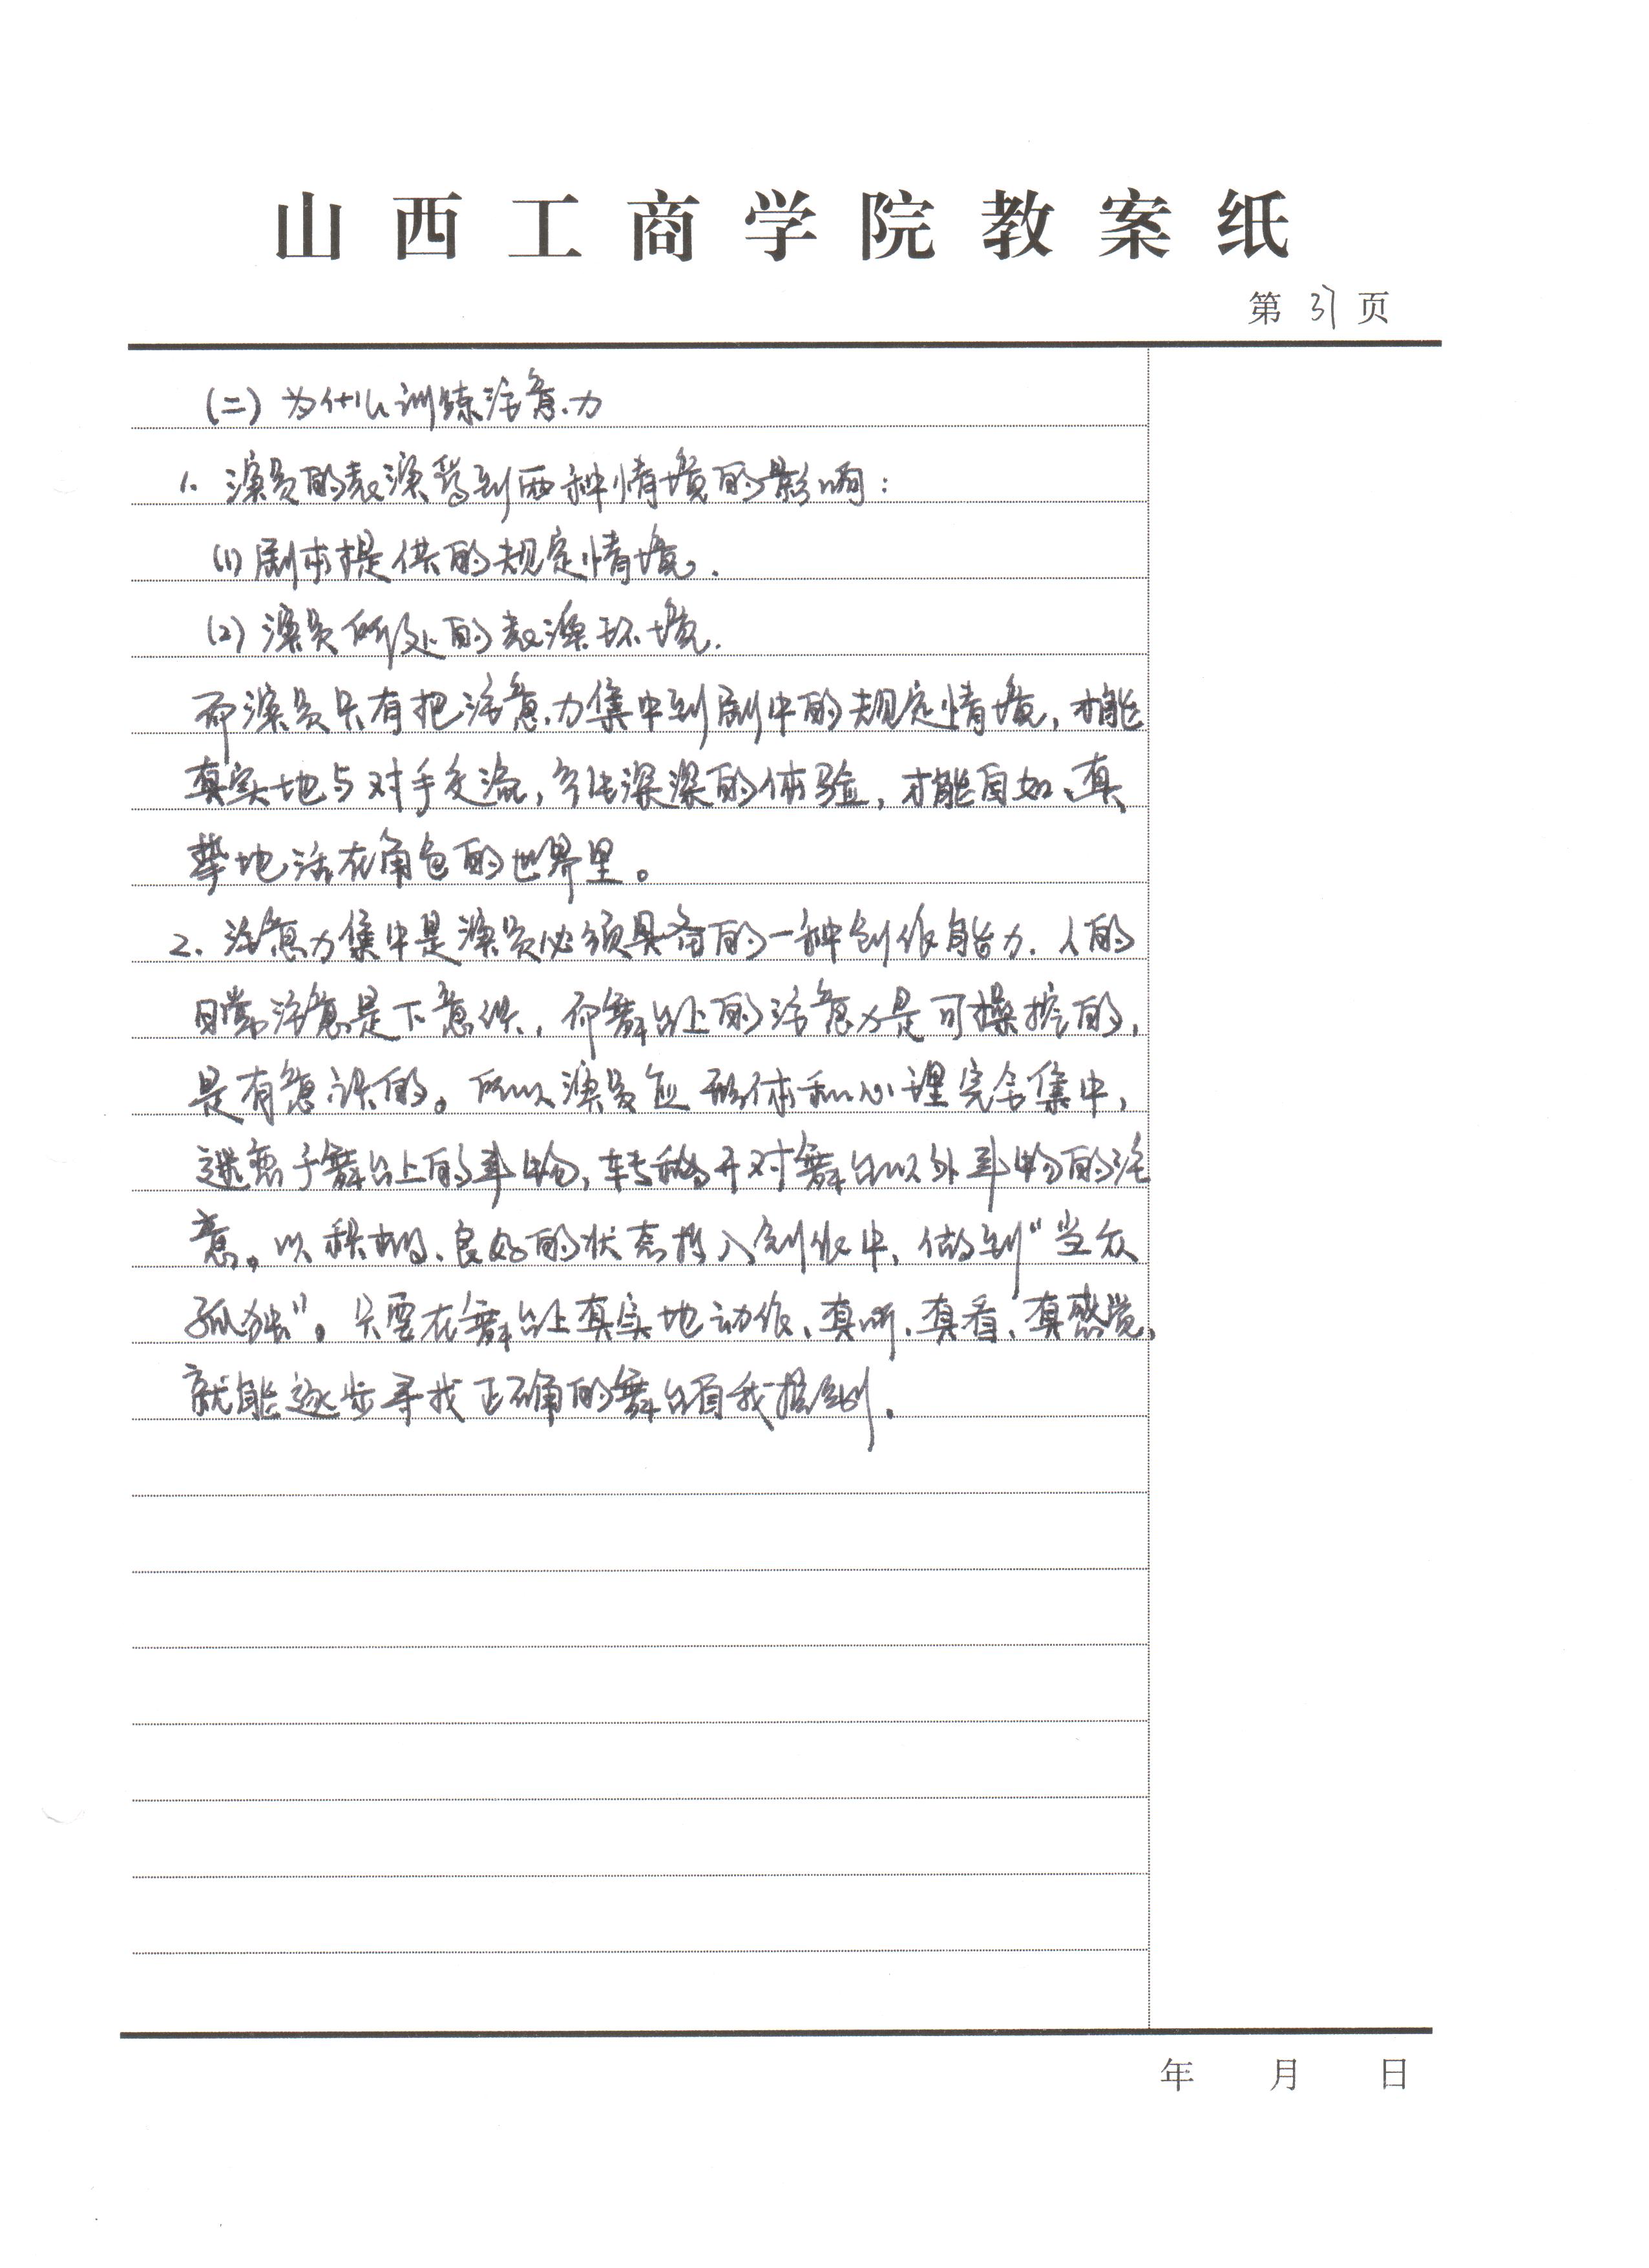 山西工商学院教案纸
第 37 页
(二) 为什么训练注意力
1. 演员的表演受到两种情境的影响:
(1) 剧本提供的规定情境.
(2) 演员所处的表演环境.
而演员只有把注意力集中到剧中的规定情境, 才能
真实地与对手交流, 产生深深的体验, 才能自如、真
挚地活在角色的世界里。
2. 注意力集中是演员必须具备的一种创作能力. 人的
日常注意是下意识, 而舞台上的注意力是可操控的,
是有意识的。所以演员应形体和心理完全集中,
迷恋于舞台上的事物, 转移开对舞台以外事物的注
意。以积极、良好的状态投入创作中, 做到"当众
孤独"。只要在舞台上真实地动作、真听、真看、真感觉,
就能逐步寻找正确的舞台自我控制.
年 月 日